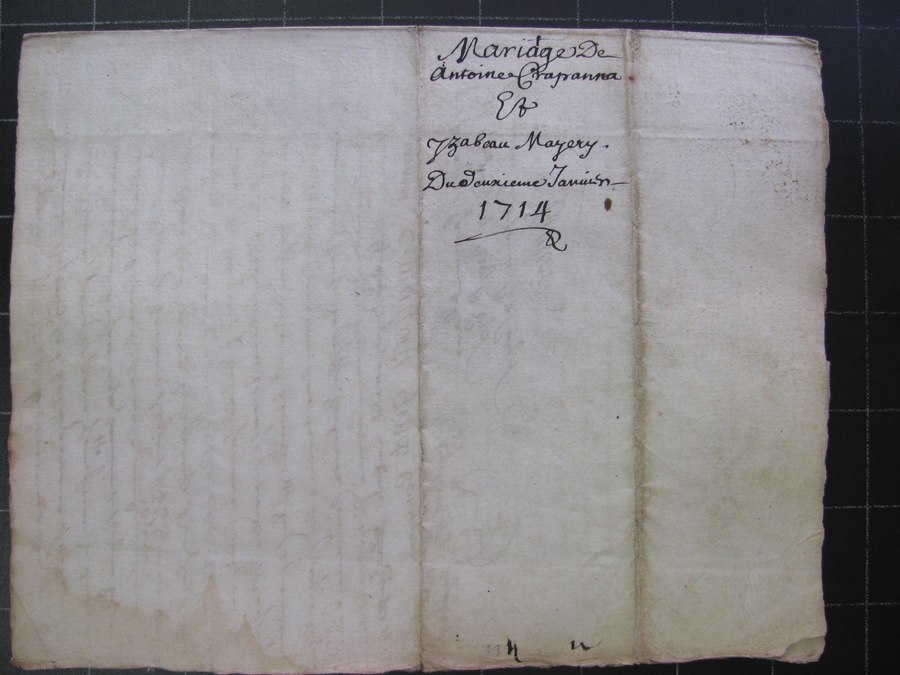 Mariage De
Antoine Crapanna
Et
Yzabeau Mayery.
Du deuxieme Janvier
1714